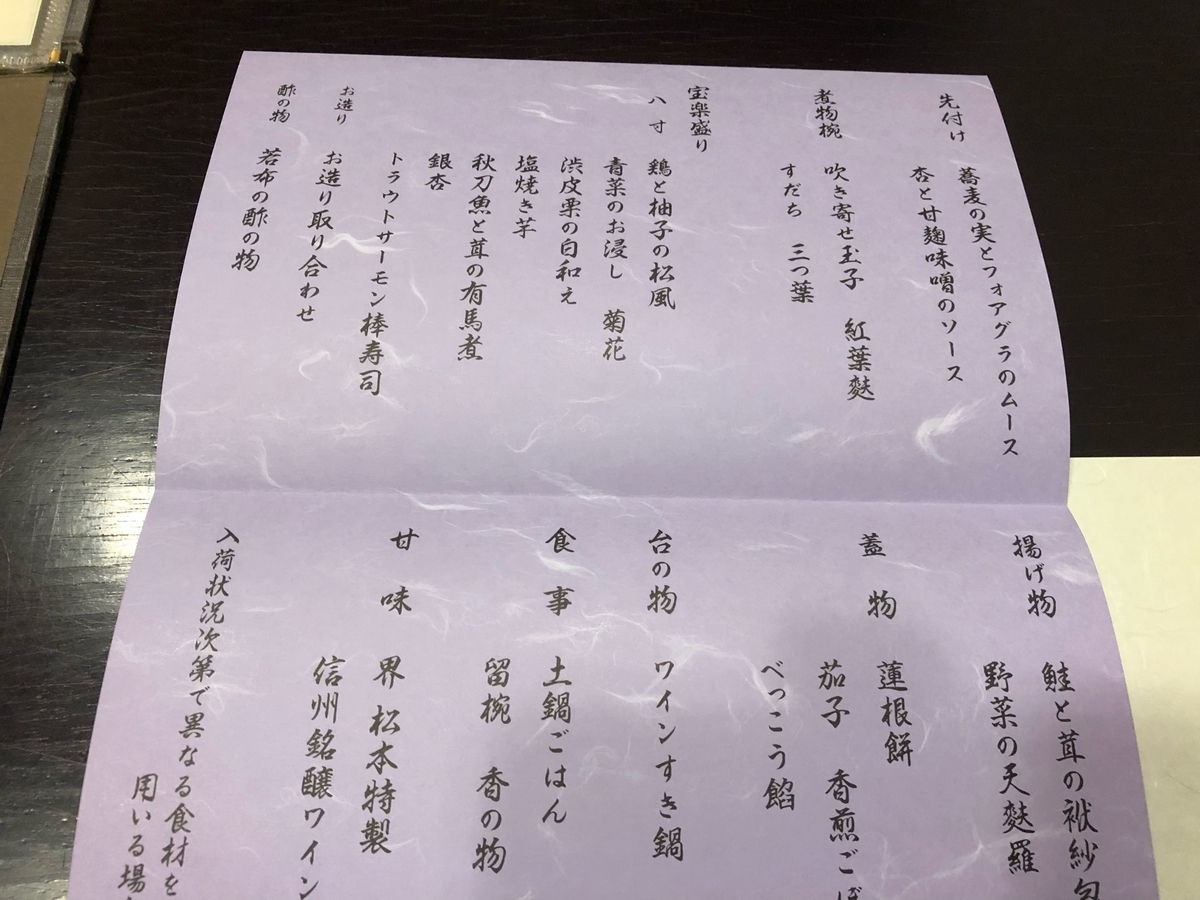 先付け
蕎麦の実とフォアグラのムース
杏と甘麹味噌のソース
煮物椀
吹き寄せ玉子 紅葉麸
すだち 三つ葉
宝楽盛り
八寸
鶏と柚子の松風
青菜のお浸し 菊花
渋皮栗の白和え
塩焼き芋
秋刀魚と茸の有馬煮
銀杏
トラウトサーモン棒寿司
お造り
お造り取り合わせ
酢の物
若布の酢の物
揚げ物
鮭と茸の袱紗包
野菜の天麩羅
蓋物
蓮根餅
茄子 香煎ごぼ
べっこう餡
台の物
ワインすき鍋
食事
土鍋ごはん
留椀 香の物
甘味
界 松本特製
信州銘醸ワイン
入荷状況次第で異なる食材を
用いる場